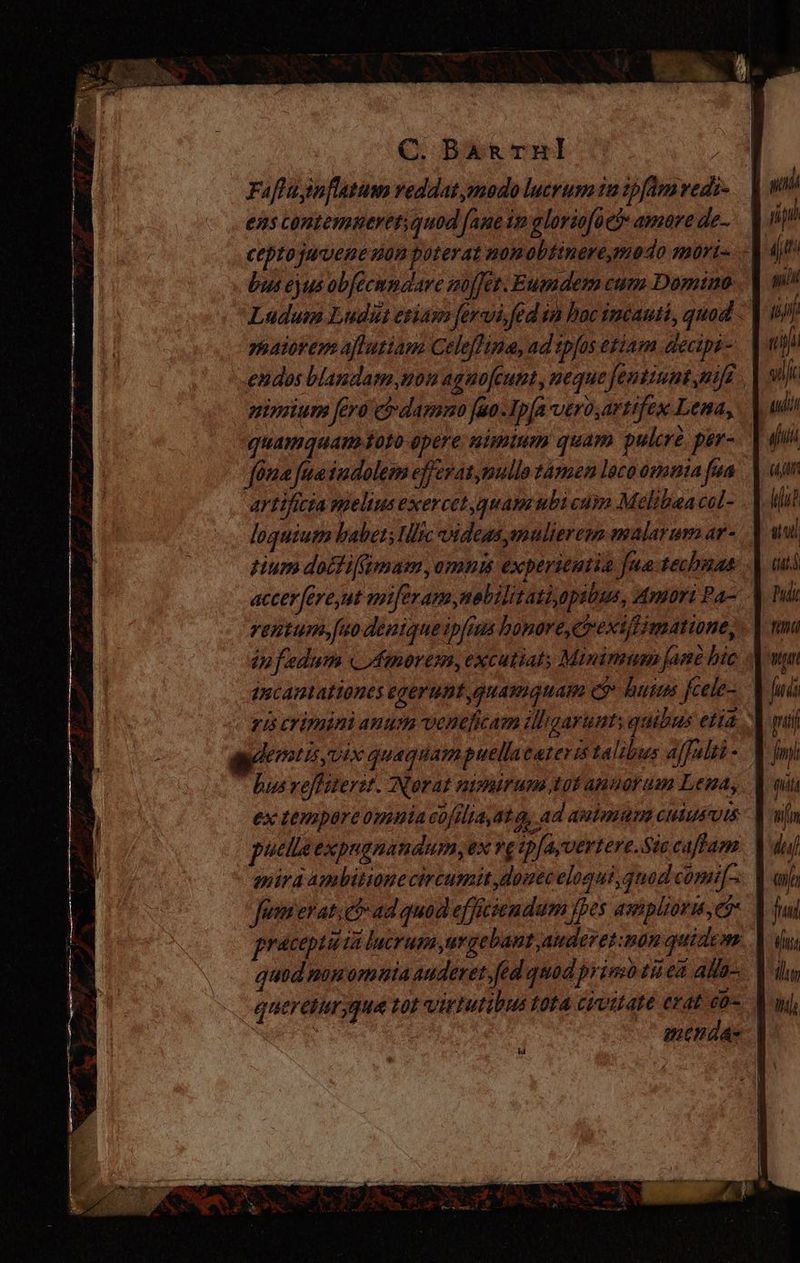 C. BARTHI
Fastu, inflatum reddat, modo lucrum in ipsam redi-
ens contemneret; quod sane in glorioso & amore de-
cepto juvene non poterat non obtinere, modo mori-
bus ejus obsecundare nosset. Eumdem cum Domino
Ludum Ludũt etiam servi, sed in hoc incauti, quod
maiorem astutiam Celestinæ, ad ipsos etiam decipi-
endos blandam, non agnoscunt, neque sentiunt, nisi
nimium sero & damno suo. Ipsa vero, artifex Lena,
quamquam toto opere nimium quam pulcrè per-
sona sua indolem efferat, nullo tamen loco omnia sua
artificia melius exercet, quam ubi cum Melibæa col-
loquium habet; Illic videas, mulierem malarum ar-
tium doctissimam, omnis experientia sua technas
accersere, ut miseram, nobilitati, opibus, Amori Pa-
rentum, suo denique ipsius honore, & existimatione,
in fædum Amorem, excutiat; Minimum sanè hic
incantationes egerunt, quamquam & huius scele-
ris crimini anum veneficam illigarunt; quibus etiã
demtis, vix quaquam puella cæteris talibus assulti-
bus restiterit. Norat nimirum, tot annorum Lena,
ex tempore omnia cõsilia, atq, ad animum cuiusvis
puellæ expugnandum, ex re ipsa, vertere. Sic cassam
mirâ ambitione circumit, donec eloqui, quod cõmis-
sum erat, & ad quod efficiendum spes amplioris, &
præcepti iã lucrum, urgebant, auderet: non quidem
quod non omnia auderet, sed quod primò tũ ea allo-
queretur, quæ tot virtutibus tota civitate erat cõ-
menda-